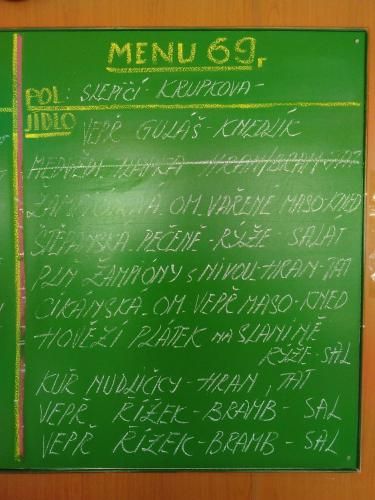 MENU 69,
POL: SLEPIČÍ KRUPKOVA -
JÍDLO VEPŘ GULÁŠ - KNEDLÍK
MEDVĚDÍ
OM. VAŘENÉ MASO - KNED
ŠTĚPÁNSKÁ PEČENĚ - RÝŽE - SALÁT
PLN ŽAMPIÓNY S NIVOU - HRAN - TAT
CIKÁNSKÁ OM. VEPŘ MASO - KNED
HOVĚZÍ PLÁTEK NA SLANINĚ
RÝŽE - SAL
KUŘ NUDLIČKY - HRAN, TAT
VEPŘ ŘÍZEK - BRAMB - SAL
VEPŘ ŘÍZEK - BRAMB - SAL